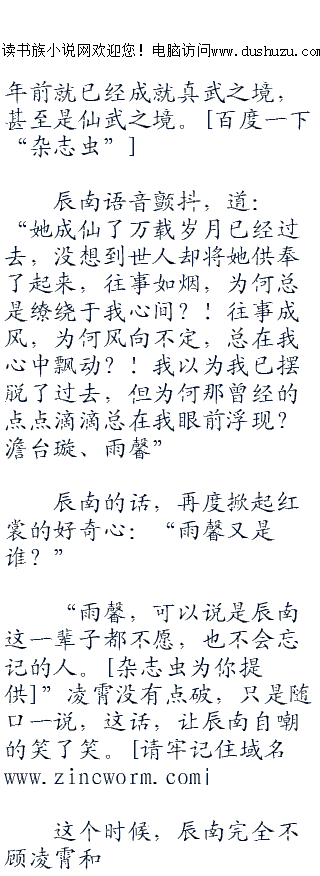 读书族小说网欢迎您！电脑访问www.dushuzu.com
年前就已经成就真武之境，
甚至是仙武之境。[百度一下
“杂志虫”]
辰南语音颤抖，道：
“她成仙了万载岁月已经过
去，没想到世人却将她供奉
了起来，往事如烟，为何总
是缭绕于我心间？！往事成
风，为何风向不定，总在我
心中飘动？！我以为我已摆
脱了过去，但为何那曾经的
点点滴滴总在我眼前浮现？
澹台璇、雨馨”
辰南的话，再度掀起红
裳的好奇心：“雨馨又是
谁？”
“雨馨，可以说是辰南
这一辈子都不愿，也不会忘
记的人。[杂志虫为你提
供]”凌霄没有点破，只是随
口一说，这话，让辰南自嘲
的笑了笑。[请牢记住域名
www.zincworm.com]
这个时候，辰南完全不
顾凌霄和